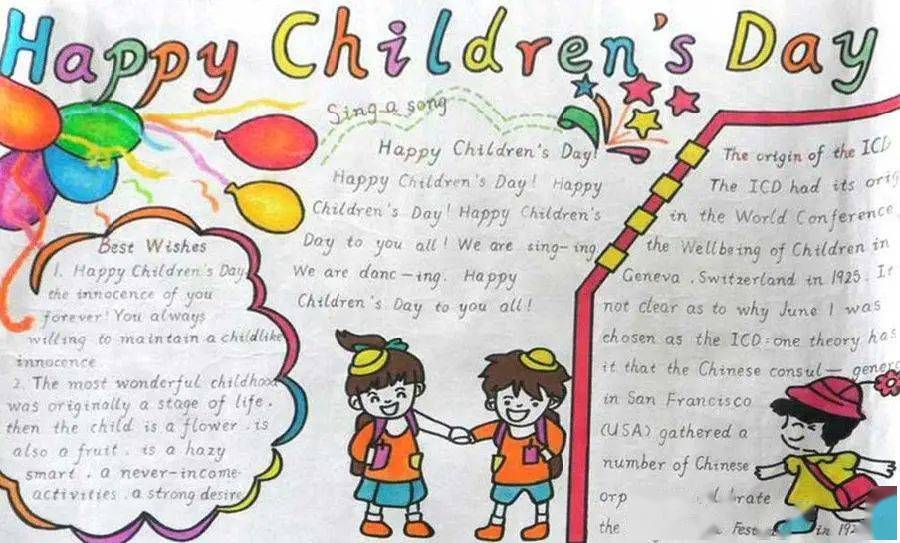 Happy Children's Day
Sing a song
Happy Children's Day!
Happy Children's Day! Happy
Children's Day! Happy Children's
Day to you all! We are sing-ing,
We are danc-ing. Happy
Children's Day to you all!
Best Wishes
1. Happy Children's Day
the innocence of you
forever! You always
willing to maintain a childlike
innocence
2. The most wonderful childhood
was originally a stage of life.
then the child is a flower. is
also a fruit. is a hazy
smart. a never-income-
activities. a strong desire
The origin of the ICD
The ICD had its orig
in the World Conference
the Wellbeing of Children in
Geneva. Switzerland in 1925. It
not clear as to why June 1 was
chosen as the ICD: one theory has
it that the Chinese consul- gener
in San Francisco
(USA) gathered a
number of Chinese
orp
the Fest in 192